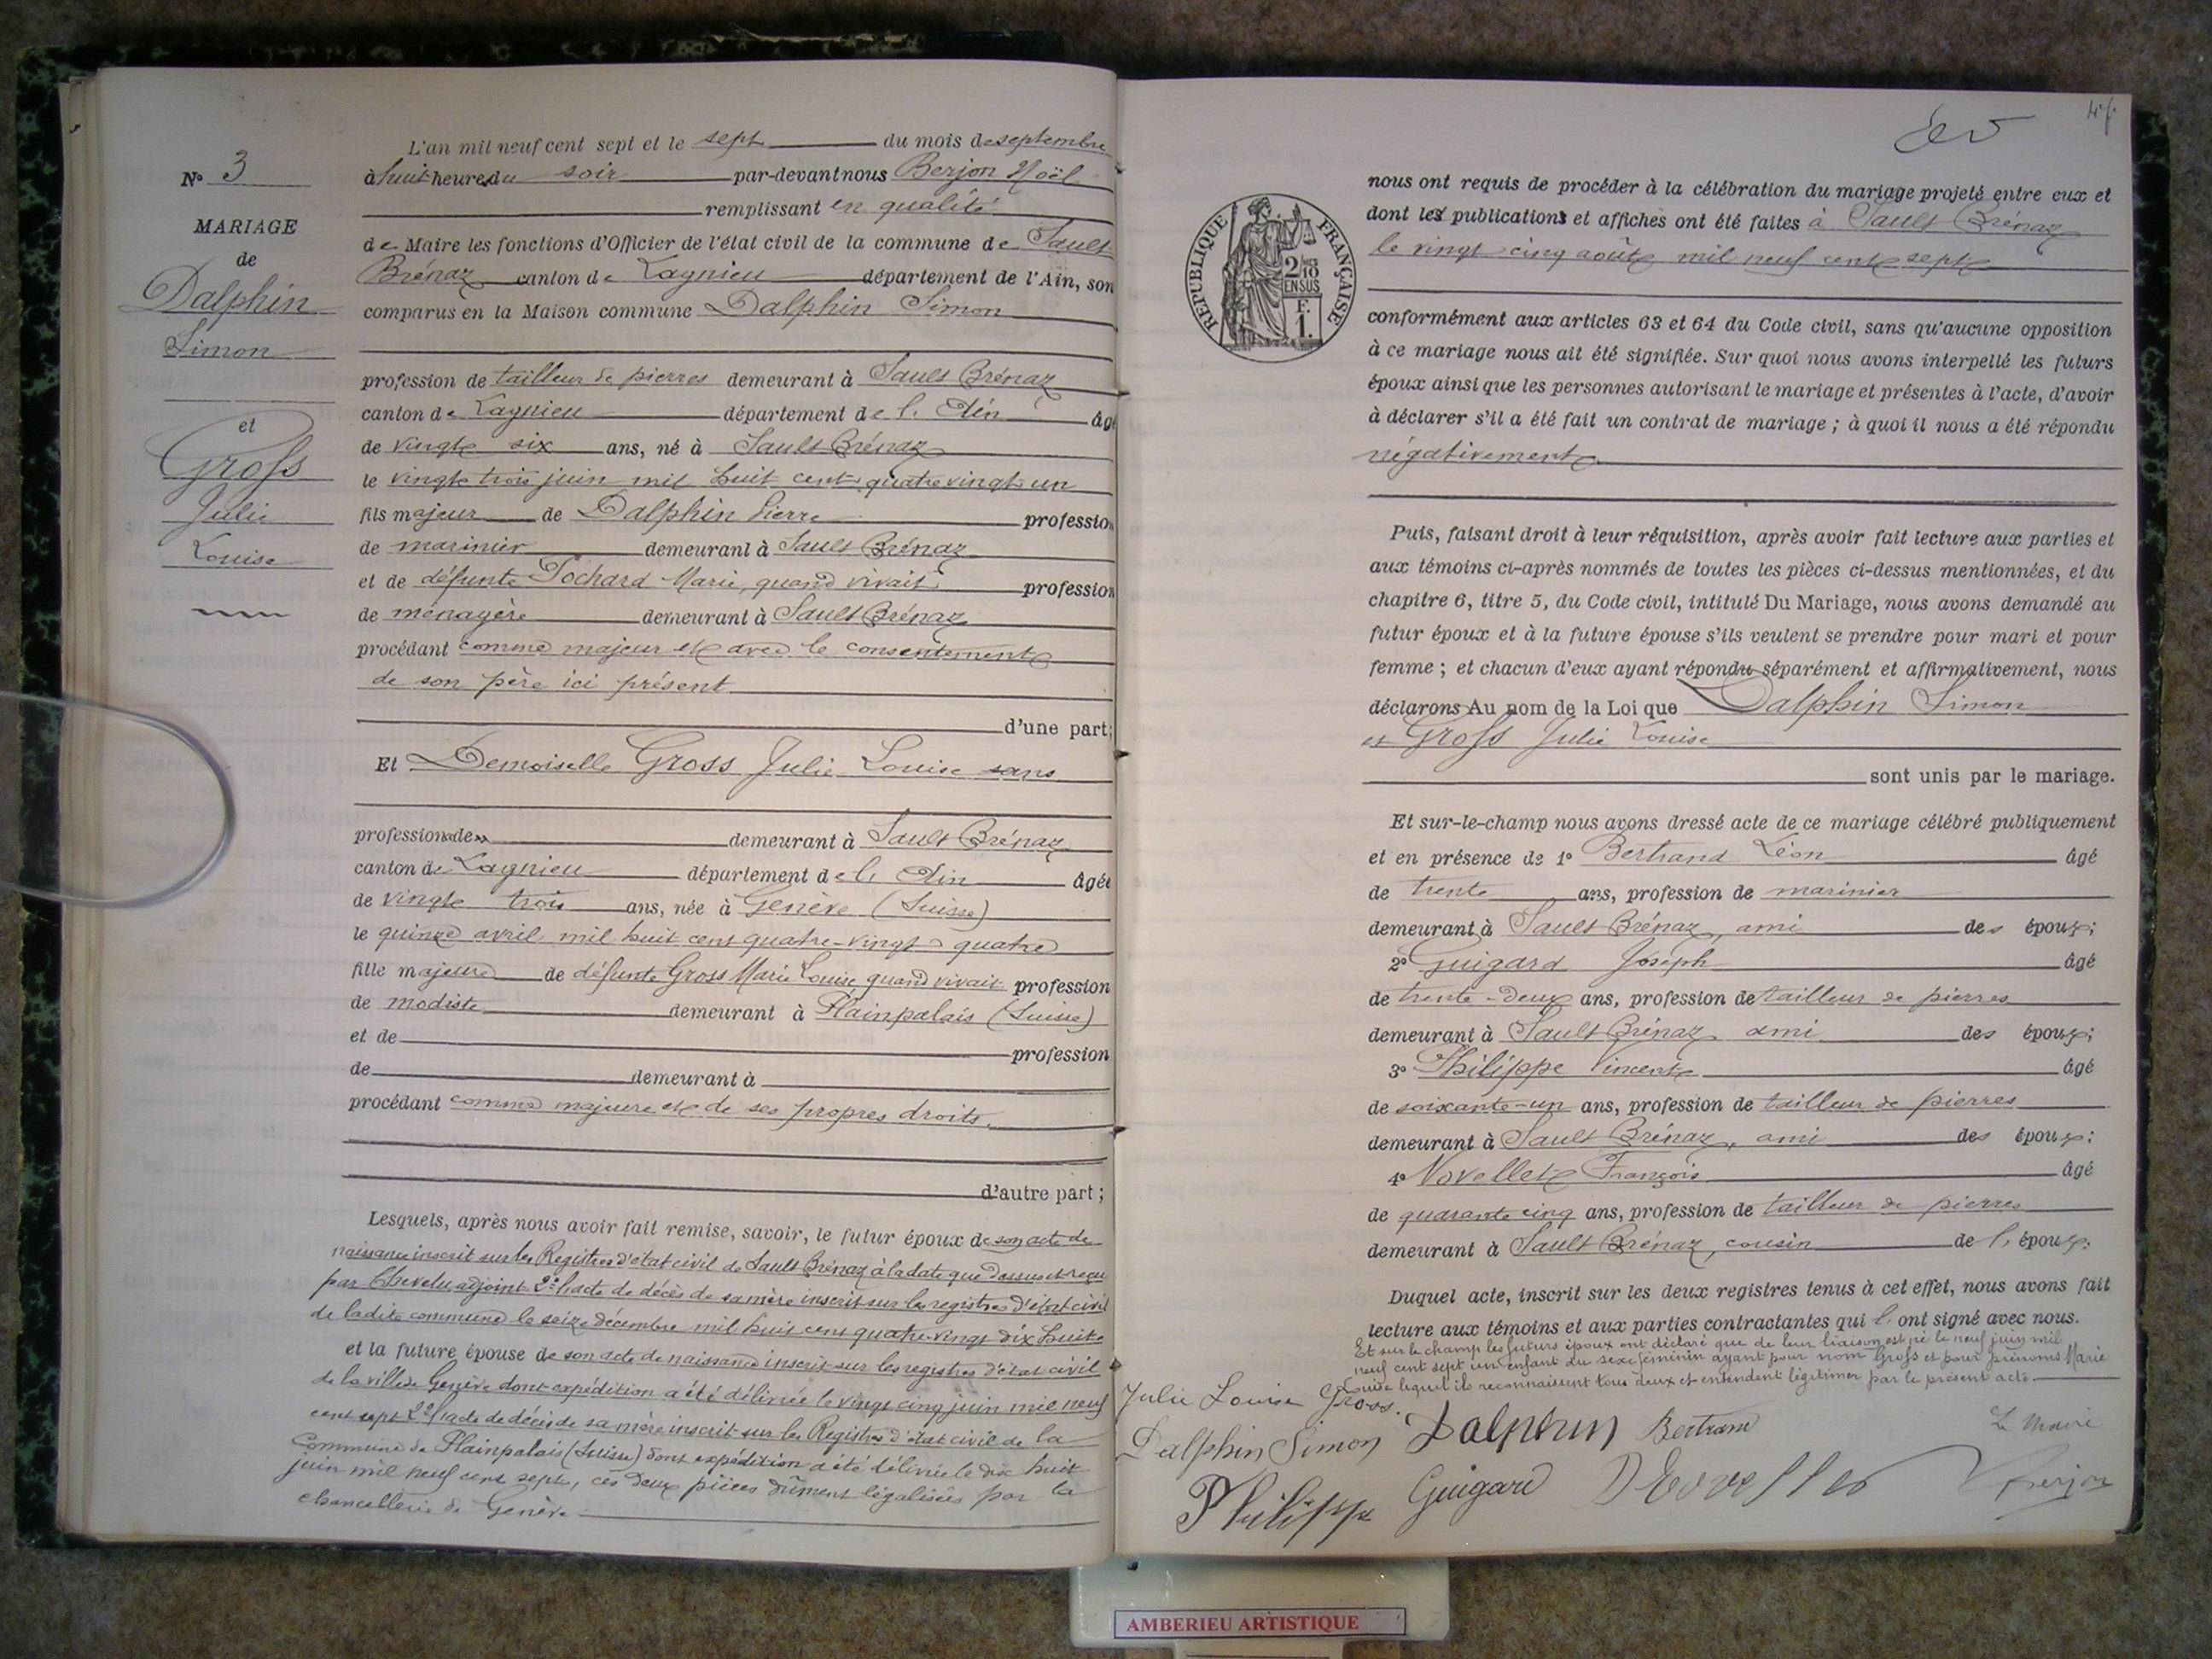 N° 3
MARIAGE
de
Dalphin
Simon
et
Gross
Julie
Louise
L'an mil neuf cent sept et le sept du mois de septembre
à huit heures du soir par-devant nous Berjon Noël
remplissant en qualité
de Maire les fonctions d'Officier de l'état civil de la commune de Sault
Brénaz canton de Lagnieu département de l'Ain, son
comparus en la Maison commune Dalphin Simon
profession de tailleur de pierres demeurant à Sault Brénaz
canton de Lagnieu département de l'Ain âgé
de vingt six ans, né à Sault Brénaz
le vingt trois juin mil huit cent quatre vingt un
fils majeur de Dalphin Pierre profession
de marinier demeurant à Sault Brénaz
et de défunte Tochard Marie, quand vivait profession
de ménagère demeurant à Sault Brénaz
procédant comme majeur et avec le consentement
de son père ici présent
d'une part;
Et Demoiselle Gross Julie Louise sans
profession de demeurant à Sault Brénaz
canton de Lagnieu département de l'Ain âgée
de vingt trois ans, née à Genève (Suisse)
le quinze avril mil huit cent quatre-vingt quatre
fille majeure de défunte Gross Marie Louise, quand vivait profession
de modiste demeurant à Plainpalais (Suisse)
et de profession
de demeurant à
procédant comme majeure et de ses propres droits.
d'autre part;
Lesquels, après nous avoir fait remise, savoir, le futur époux de son acte de
naissance inscrit sur les Registres d'état civil de Sault Brénaz à la date que dessus et reçu
par Chevelu adjoint 2° l'acte de décès de sa mère inscrit sur les registres d'état civil
de ladite commune le seize décembre mil huit cent quatre-vingt dix huit
et la future épouse de son acte de naissance inscrit sur les registres d'état civil
de la ville de Genève dont expédition a été délivrée le vingt cinq juin mil neuf
cent sept 2° l'acte de décès de sa mère inscrit sur les Registres d'état civil de la
Commune de Plainpalais (Suisse) dont expédition a été délivrée le dix huit
juin mil neuf cent sept, ces deux pièces dûment légalisées par la
chancellerie de Genève
47
RÉPUBLIQUE FRANÇAISE
2 10 EN SUS
F. 1.
nous ont requis de procéder à la célébration du mariage projeté entre eux et
dont les publications et affiches ont été faites à Sault Brénaz
le vingt cinq août mil neuf cent sept
conformément aux articles 63 et 64 du Code civil, sans qu'aucune opposition
à ce mariage nous ait été signifiée. Sur quoi nous avons interpellé les futurs
époux ainsi que les personnes autorisant le mariage et présentes à l'acte, d'avoir
à déclarer s'il a été fait un contrat de mariage; à quoi il nous a été répondu
négativement
Puis, faisant droit à leur réquisition, après avoir fait lecture aux parties et
aux témoins ci-après nommés de toutes les pièces ci-dessus mentionnées, et du
chapitre 6, titre 5, du Code civil, intitulé Du Mariage, nous avons demandé au
futur époux et à la future épouse s'ils veulent se prendre pour mari et pour
femme; et chacun d'eux ayant répondu séparément et affirmativement, nous
déclarons Au nom de la Loi que Dalphin Simon
et Gross Julie Louise
sont unis par le mariage.
Et sur-le-champ nous avons dressé acte de ce mariage célébré publiquement
et en présence de 1° Bertrand Léon âgé
de trente ans, profession de marinier
demeurant à Sault Brénaz, ami des époux;
2° Guigard Joseph âgé
de trente-deux ans, profession de tailleur de pierres
demeurant à Sault Brénaz ami des époux;
3° Philippe Vincent âgé
de soixante-un ans, profession de tailleur de pierres
demeurant à Sault Brénaz, ami des époux;
4° Novellet François âgé
de quarante cinq ans, profession de tailleur de pierres
demeurant à Sault Brénaz, cousin de l'époux.
Duquel acte, inscrit sur les deux registres tenus à cet effet, nous avons fait
lecture aux témoins et aux parties contractantes qui l'ont signé avec nous.
Et sur le champ les futurs époux ont déclaré que de leur liaison est né le neuf juin mil
neuf cent sept un enfant du sexe féminin ayant pour nom Gross et pour prénoms Marie
Louise lequel ils reconnaissent tous deux et entendent légitimer par le présent acte
Julie Louise Gross.
Dalphin Simon Dalphin Bertrand Le Maire
Philippe Guigard Berjon
AMBERIEU ARTISTIQUE